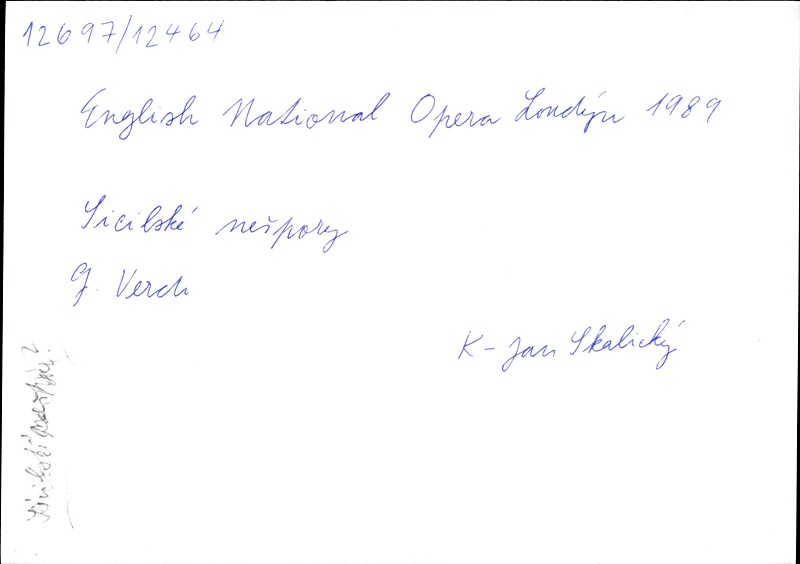 12697/12464
English National Opera Londýn 1989
Sicilské nešpory
G. Verdi
K - Jan Skalický